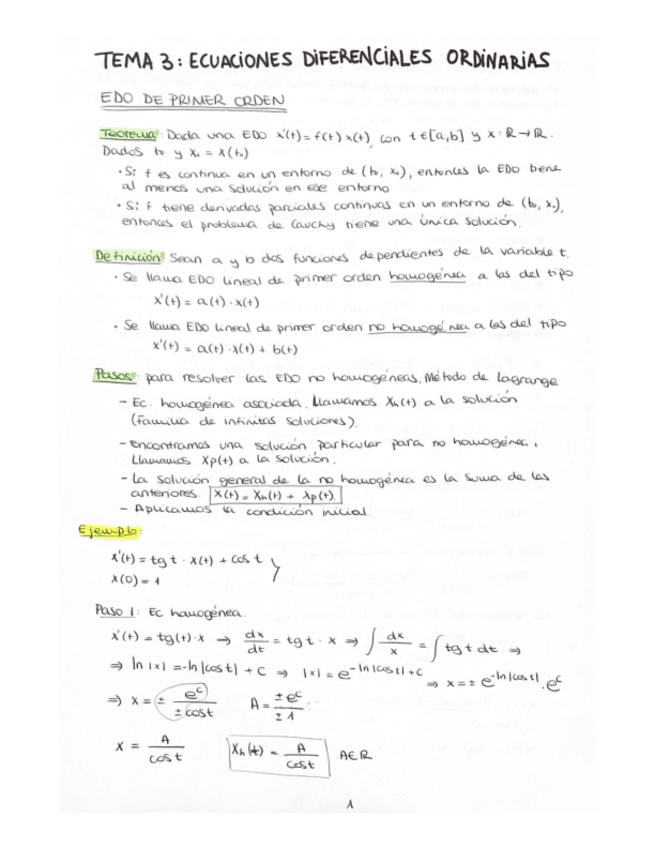 TEMA 3: ECUACIONES DIFERENCIALES ORDINARIAS
EDO DE PRIMER ORDEN
Teorema: Dada una EDO x'(t) = f(t) x(t), con t ∈ [a,b] y x: ℝ → ℝ.
Dados t₀ y x₀ = x(t₀)
· Si f es continua en un entorno de (t₀, x₀), entonces la EDO tiene
al menos una solución en ese entorno
· Si f tiene derivadas parciales continuas en un entorno de (t₀, x₀),
entonces el problema de Cauchy tiene una única solución.
Definición: Sean a y b dos funciones dependientes de la variable t.
· Se llama EDO lineal de primer orden homogénea a las del tipo
x'(t) = a(t) · x(t)
· Se llama EDO lineal de primer orden no homogénea a las del tipo
x'(t) = a(t) · x(t) + b(t)
Pasos: para resolver las EDO no homogéneas. Método de Lagrange
- Ec. homogénea asociada. Llamamos Xh(t) a la solución
(familia de infinitas soluciones).
- encontramos una solución particular para no homogénea.
Llamamos Xp(t) a la solución.
- La solución general de la no homogénea es la suma de las
anteriores. X(t) = Xh(t) + Xp(t)
- Aplicamos la condición inicial.
Ejemplo:
x'(t) = tg t · x(t) + cos t }
x(0) = 1
Paso 1: Ec homogénea.
x'(t) = tg(t) · x ⇒ dx/dt = tg t · x ⇒ ∫ dx/x = ∫ tg t dt ⇒
⇒ ln |x| = -ln |cos t| + C ⇒ |x| = e^(-ln|cos t| + C) ⇒ x = ± e^(-ln|cos t|) · e^C
⇒ x = ± e^C / ± cos t A = ± e^C / ± 1
x = A / cos t Xh(t) = A / cos t A ∈ ℝ
1